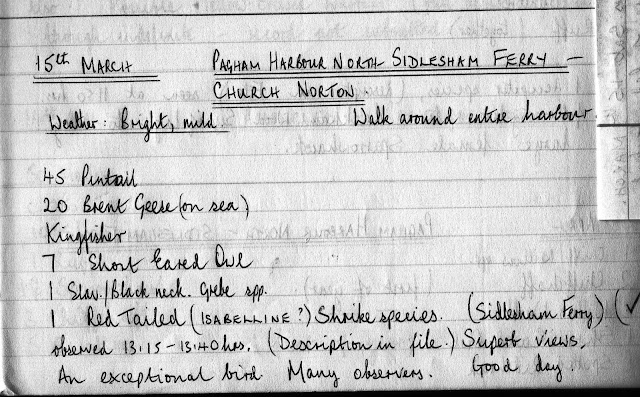 15th MARCH PAGHAM HARBOUR NORTH - SIDLESHAM FERRY -
CHURCH NORTON
Weather: Bright, mild. Walk around entire harbour.
45 Pintail
20 Brent Geese (on sea)
Kingfisher
7 Short Eared Owl
1 Slav./Black neck. Grebe spp.
1 Red Tailed (ISABELLINE?) Shrike species. (Sidlesham Ferry) (✓
observed 13:15 - 13:40 hrs. (Description in file.) Superb views.
An exceptional bird. Many observers. Good day.